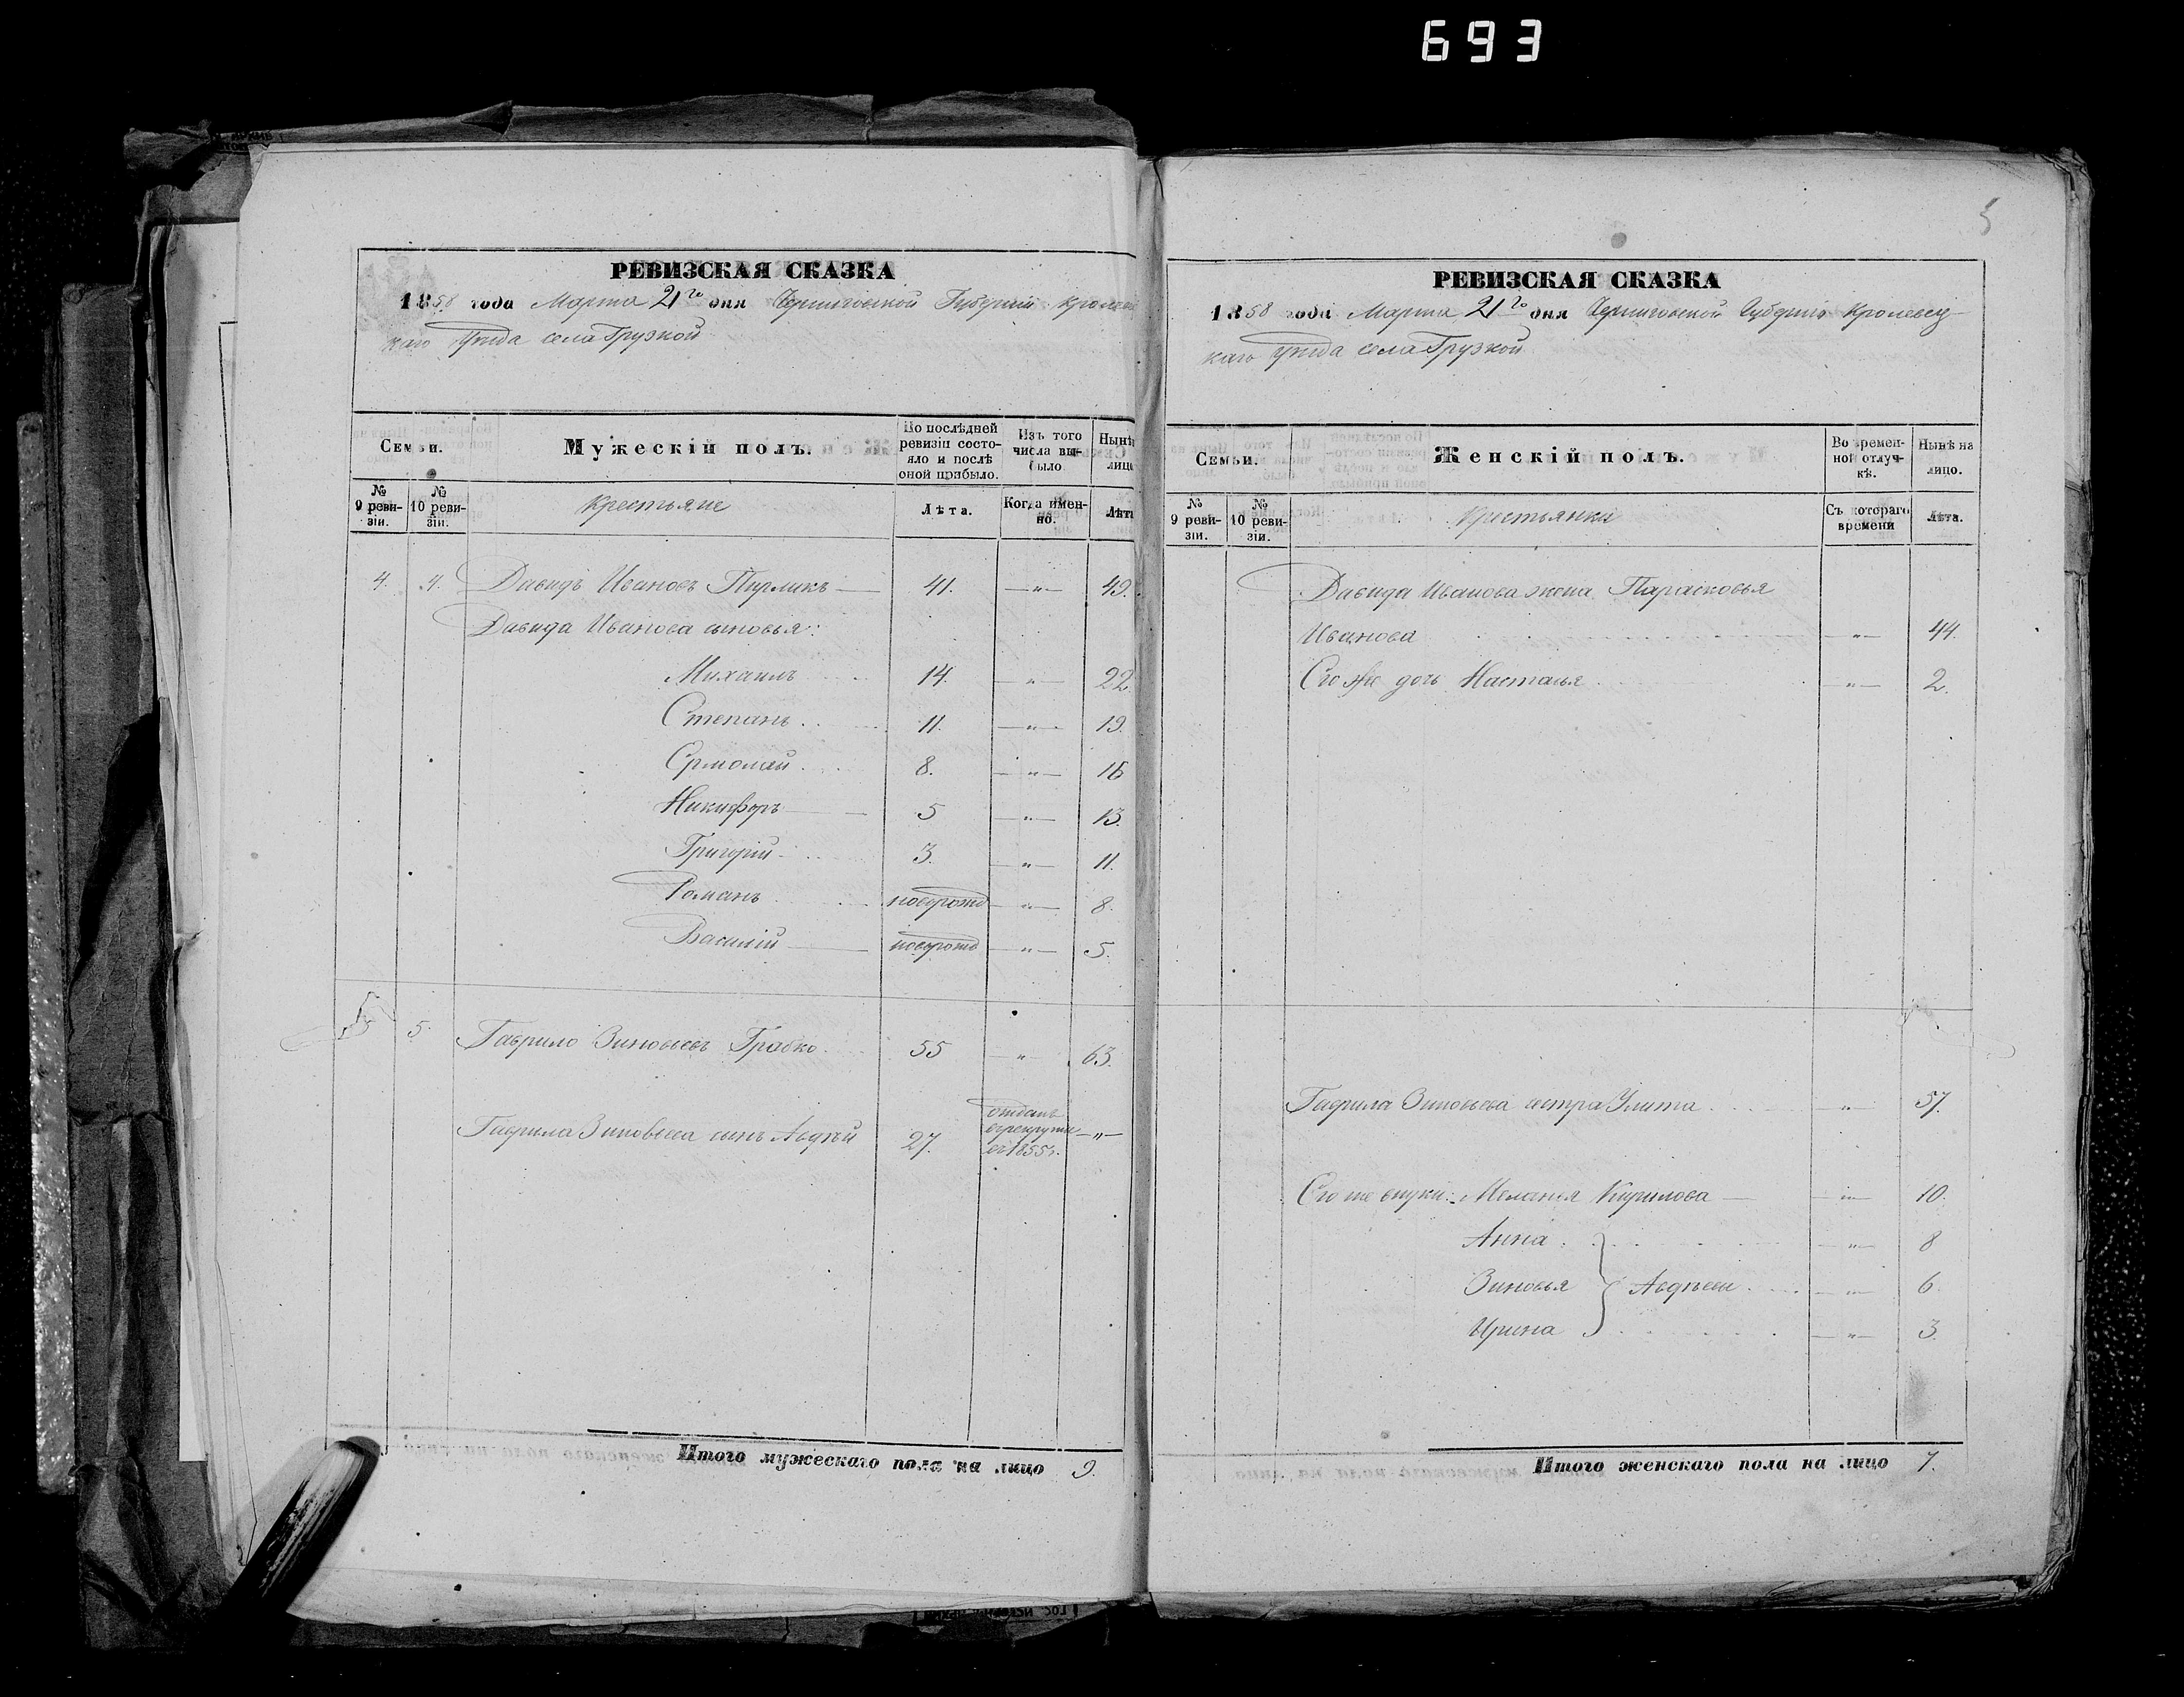 693
РЕВИЗСКАЯ СКАЗКА
1858 года Марта 21го дня Черниговской Губернии Кролевец
каго Уезда села Грузкой
Семьи.
Мужескій полъ.
По послѣдней ревизіи состояло и послѣ оной прибыло.
Изъ того числа выбыло
Нынѣ лицо
№ 9 ревизіи.
№ 10 ревизіи.
Крестьяне
Лѣта.
Когда именно.
Лѣта
4. 4. Давидъ Ивановъ Пирликъ 41. " 49.
Давида Иванова сыновья:
Михаилъ 14. " 22
Степанъ 11. " 19.
Ермолай 8. " 16
Никифоръ 5 " 13.
Григорій 3. " 11.
Романъ новорожд " 8.
Василій новорожд " 5.
5 5. Гаврило Зиновьевъ Грабко 55 " 63.
Гаврила Зиновьева сынъ Авдѣй 27. отданъ в рекруты въ 1855 г. "
Итого мужескаго пола на лицо 9.
5
РЕВИЗСКАЯ СКАЗКА
1858 года Марта 21го дня Черниговской Губерніи Кролевец
каго Уезда села Грузкой
Семьи.
Женскій полъ.
Во временной отлучкѣ.
Нынѣ на лицо.
№ 9 ревизіи.
№ 10 ревизіи.
Крестьянки
Съ котораго времени
Лѣта.
Давида Иванова жена Парасковья
Иванова " 44.
Его же дочь Настасья " 2.
Гаврила Зиновьева сестра Улита " 57.
Его же внуки: Меланья Кирилова " 10.
Анна " 8
Зиновья } Авдѣевы " 6.
Ирина " 3.
Итого женскаго пола на лицо 7.